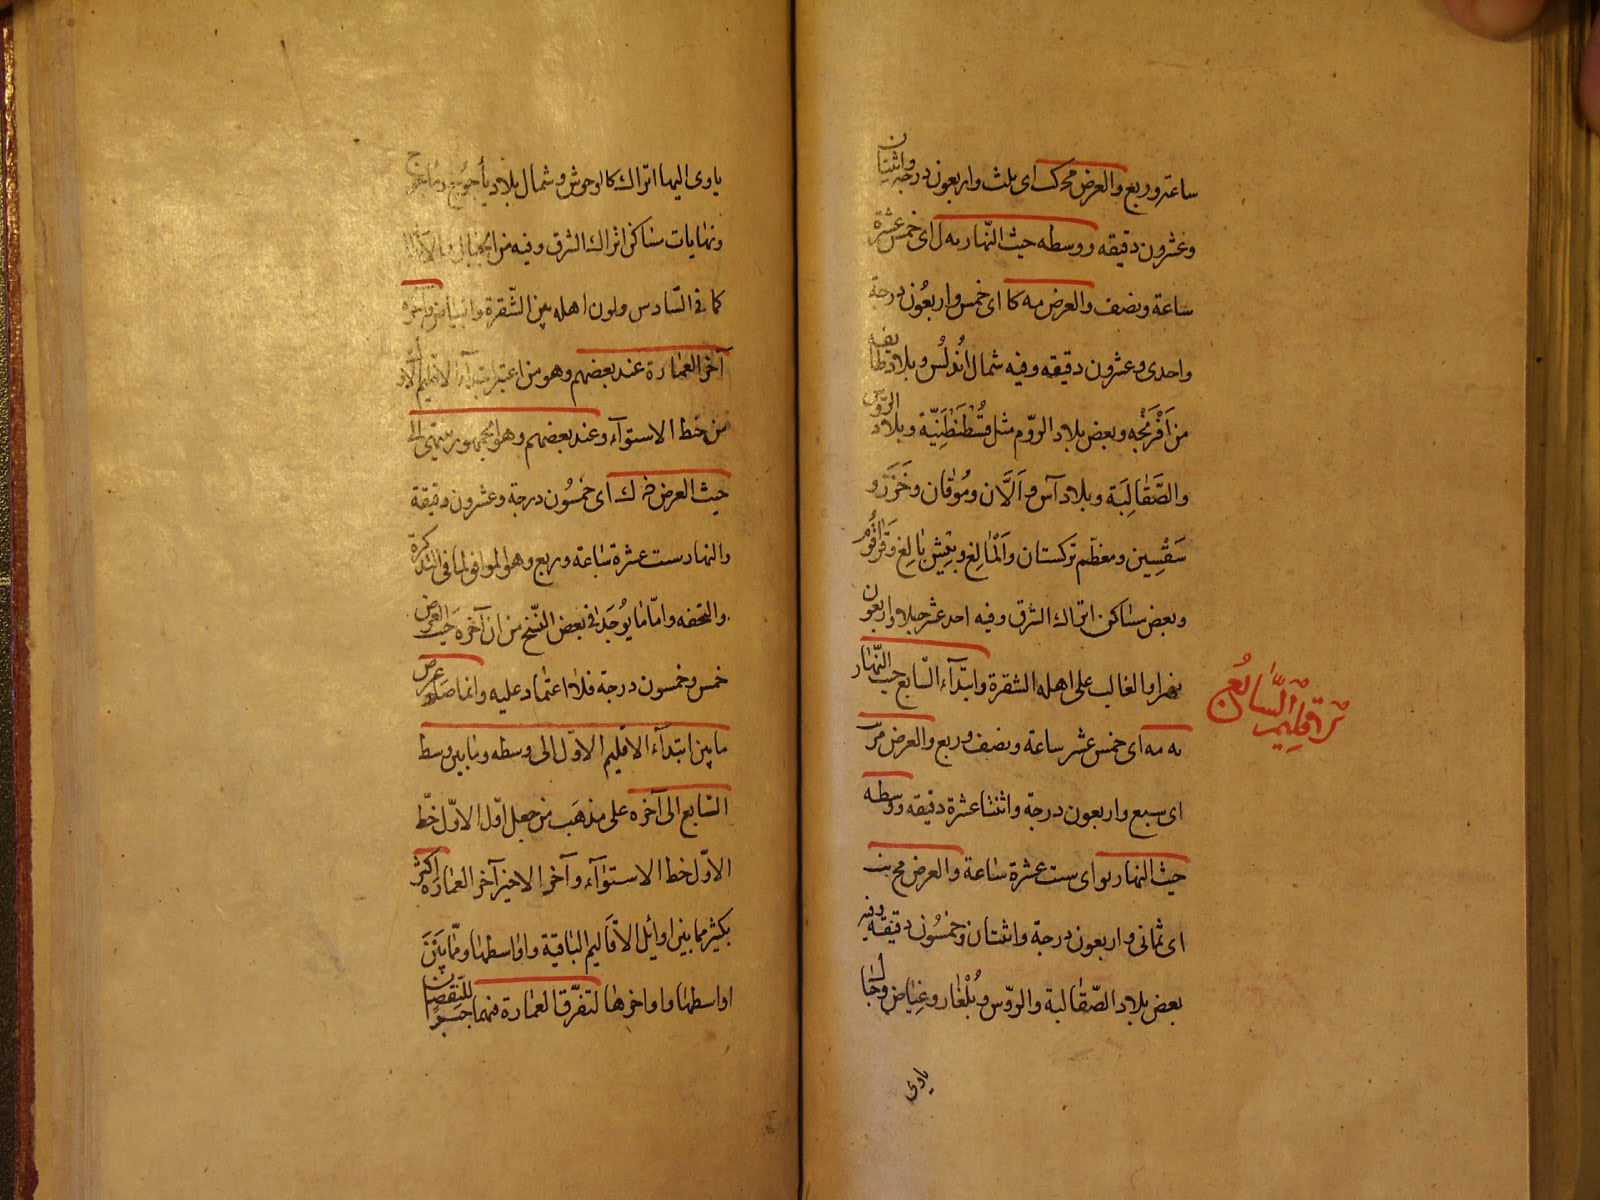 ساعة وربع والعرض مح كب اى ثلث واربعون درجة واثنتان
وعشرون دقيقه ووسطه حيث النّهار يه ل اى خمس عشرة
ساعة ونصف والعرض مه كا اى خمس واربعُون درجة
واحدى وعشرون دقيقه وفيه شمال اُندلُس وبلاد طائفه
من اَفْرَنْجَه وبعض بلاد الرّوم مثل قُسْطَنْطَنِيّة وبلاد الرّوس
والصَّقالِبَة وبلاد آس واَلَّان ومُوْقان وخَزَرَ و
سَقْسِين ومعظم تركستان واَلْمالِغ وبِيْش بالِغ وقَراقُوم
وبعض مساكن اتراك الشرق وفيه احد عشر جبلا واربعون
نهرا والغالب على اهله الشقرة وابتدآء السّابع حيث النّهار
الاقليم السّابع
يه مه اى خمس عشر ساعة ونصف وربع والعرض مز يب
اى سبع واربعون درجة واثنتا عشرة دقيقه ووسطه
حيث النهار يو اى ست عشرة ساعة والعرض مح نب
اى ثمانى واربعون درجة واثنتان وخمسُون دقيقة وفيه
بعض بلاد الصّقالبة والروّس وبُلْغار وغِياض وجبال
ياوى
ياوى اليها اتراك كالوحوش وشمال بلاد يأجوج ومأجوج
ونهايات مساكن اتراك الشرق وفيه من الجبال والانهار
كما فى السّادس ولون اهله بين الشّقرة والبياض وآخره
آخر العمارة عند بعضهم وهو من اعتبر ابتدآء الاقليم الاول
من خط الاستوآء وعند بعضهم وهو الجمهور ينتهى الى
حيث العرض ن ك اى خمسُون درجة وعشرون دقيقة
والنهار ست عشرة ساعة وربع وهو الموافق لما فى التذكرة
والتحفه وامّا ما يُوجَد فى بعض النّسخ من ان آخره حيث العرض
خمس وخمسون درجة فلا اعتماد عليه وانما صار عرض
ما بين ابتدآء الاقليم الاوّل الى وسطه وما بين وسط
السّابع الى آخره على مذهَب من جعل اوّل الاوّل خطّ
الاوّل خط الاستوآء وآخر الاخير آخر العمارة اكثر
بكثير مما بين اوائل الاقاليم الباقية واواسطها وممّا بَيْنَ
اواسطها واواخرها لتفرّق العمارة فيهما جبرا للنّقصان